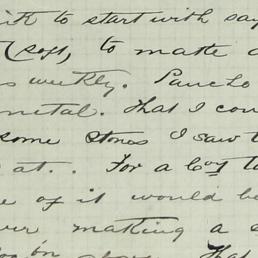 to start with say
(soft, to matte a
weekly. Pancho
metal. That I cou
some stones I saw t
at. For a boy to
e of it would be
ver making a
on
That